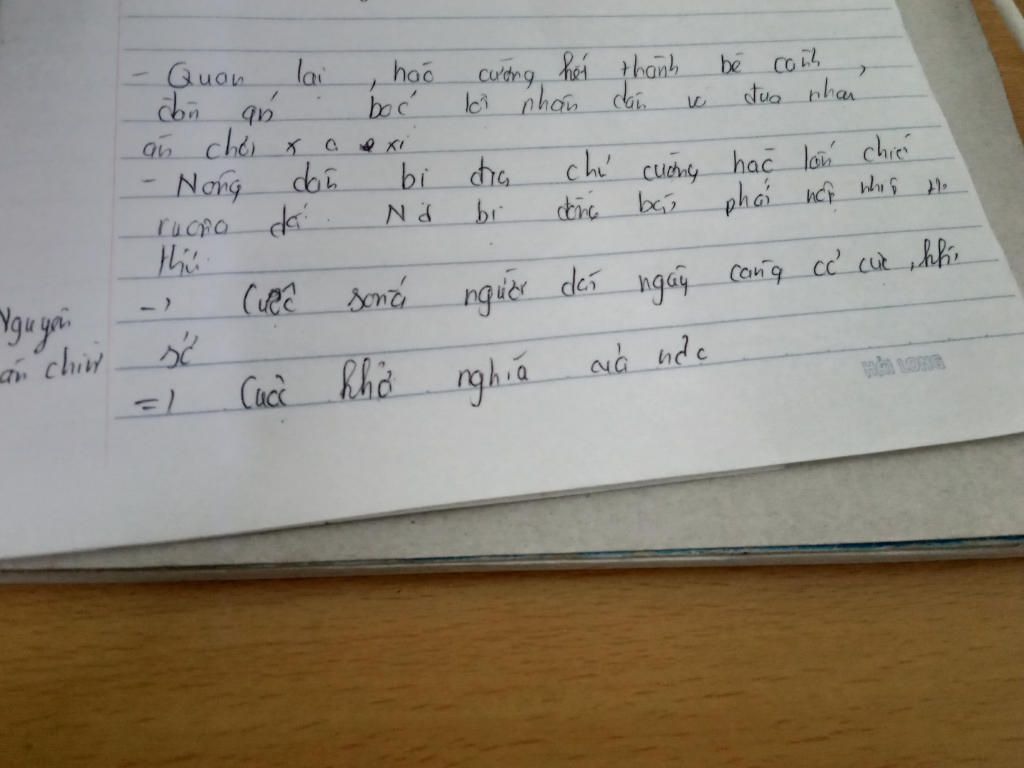 - Quan lại , hào cường kết thành bè cánh ,
đàn áp bóc lột nhân dân và đua nhau
ăn chơi xa xỉ
- Nông dân bị địa chủ cường hào lấn chiếm
ruộng đất. Nd bị phải nộp nhiều thứ
thuế.
-> Cuộc sống người dân ngày càng cơ cực , khổ
sở
=> Cuộc khởi nghĩa của
Nguyên
HẢI LONG